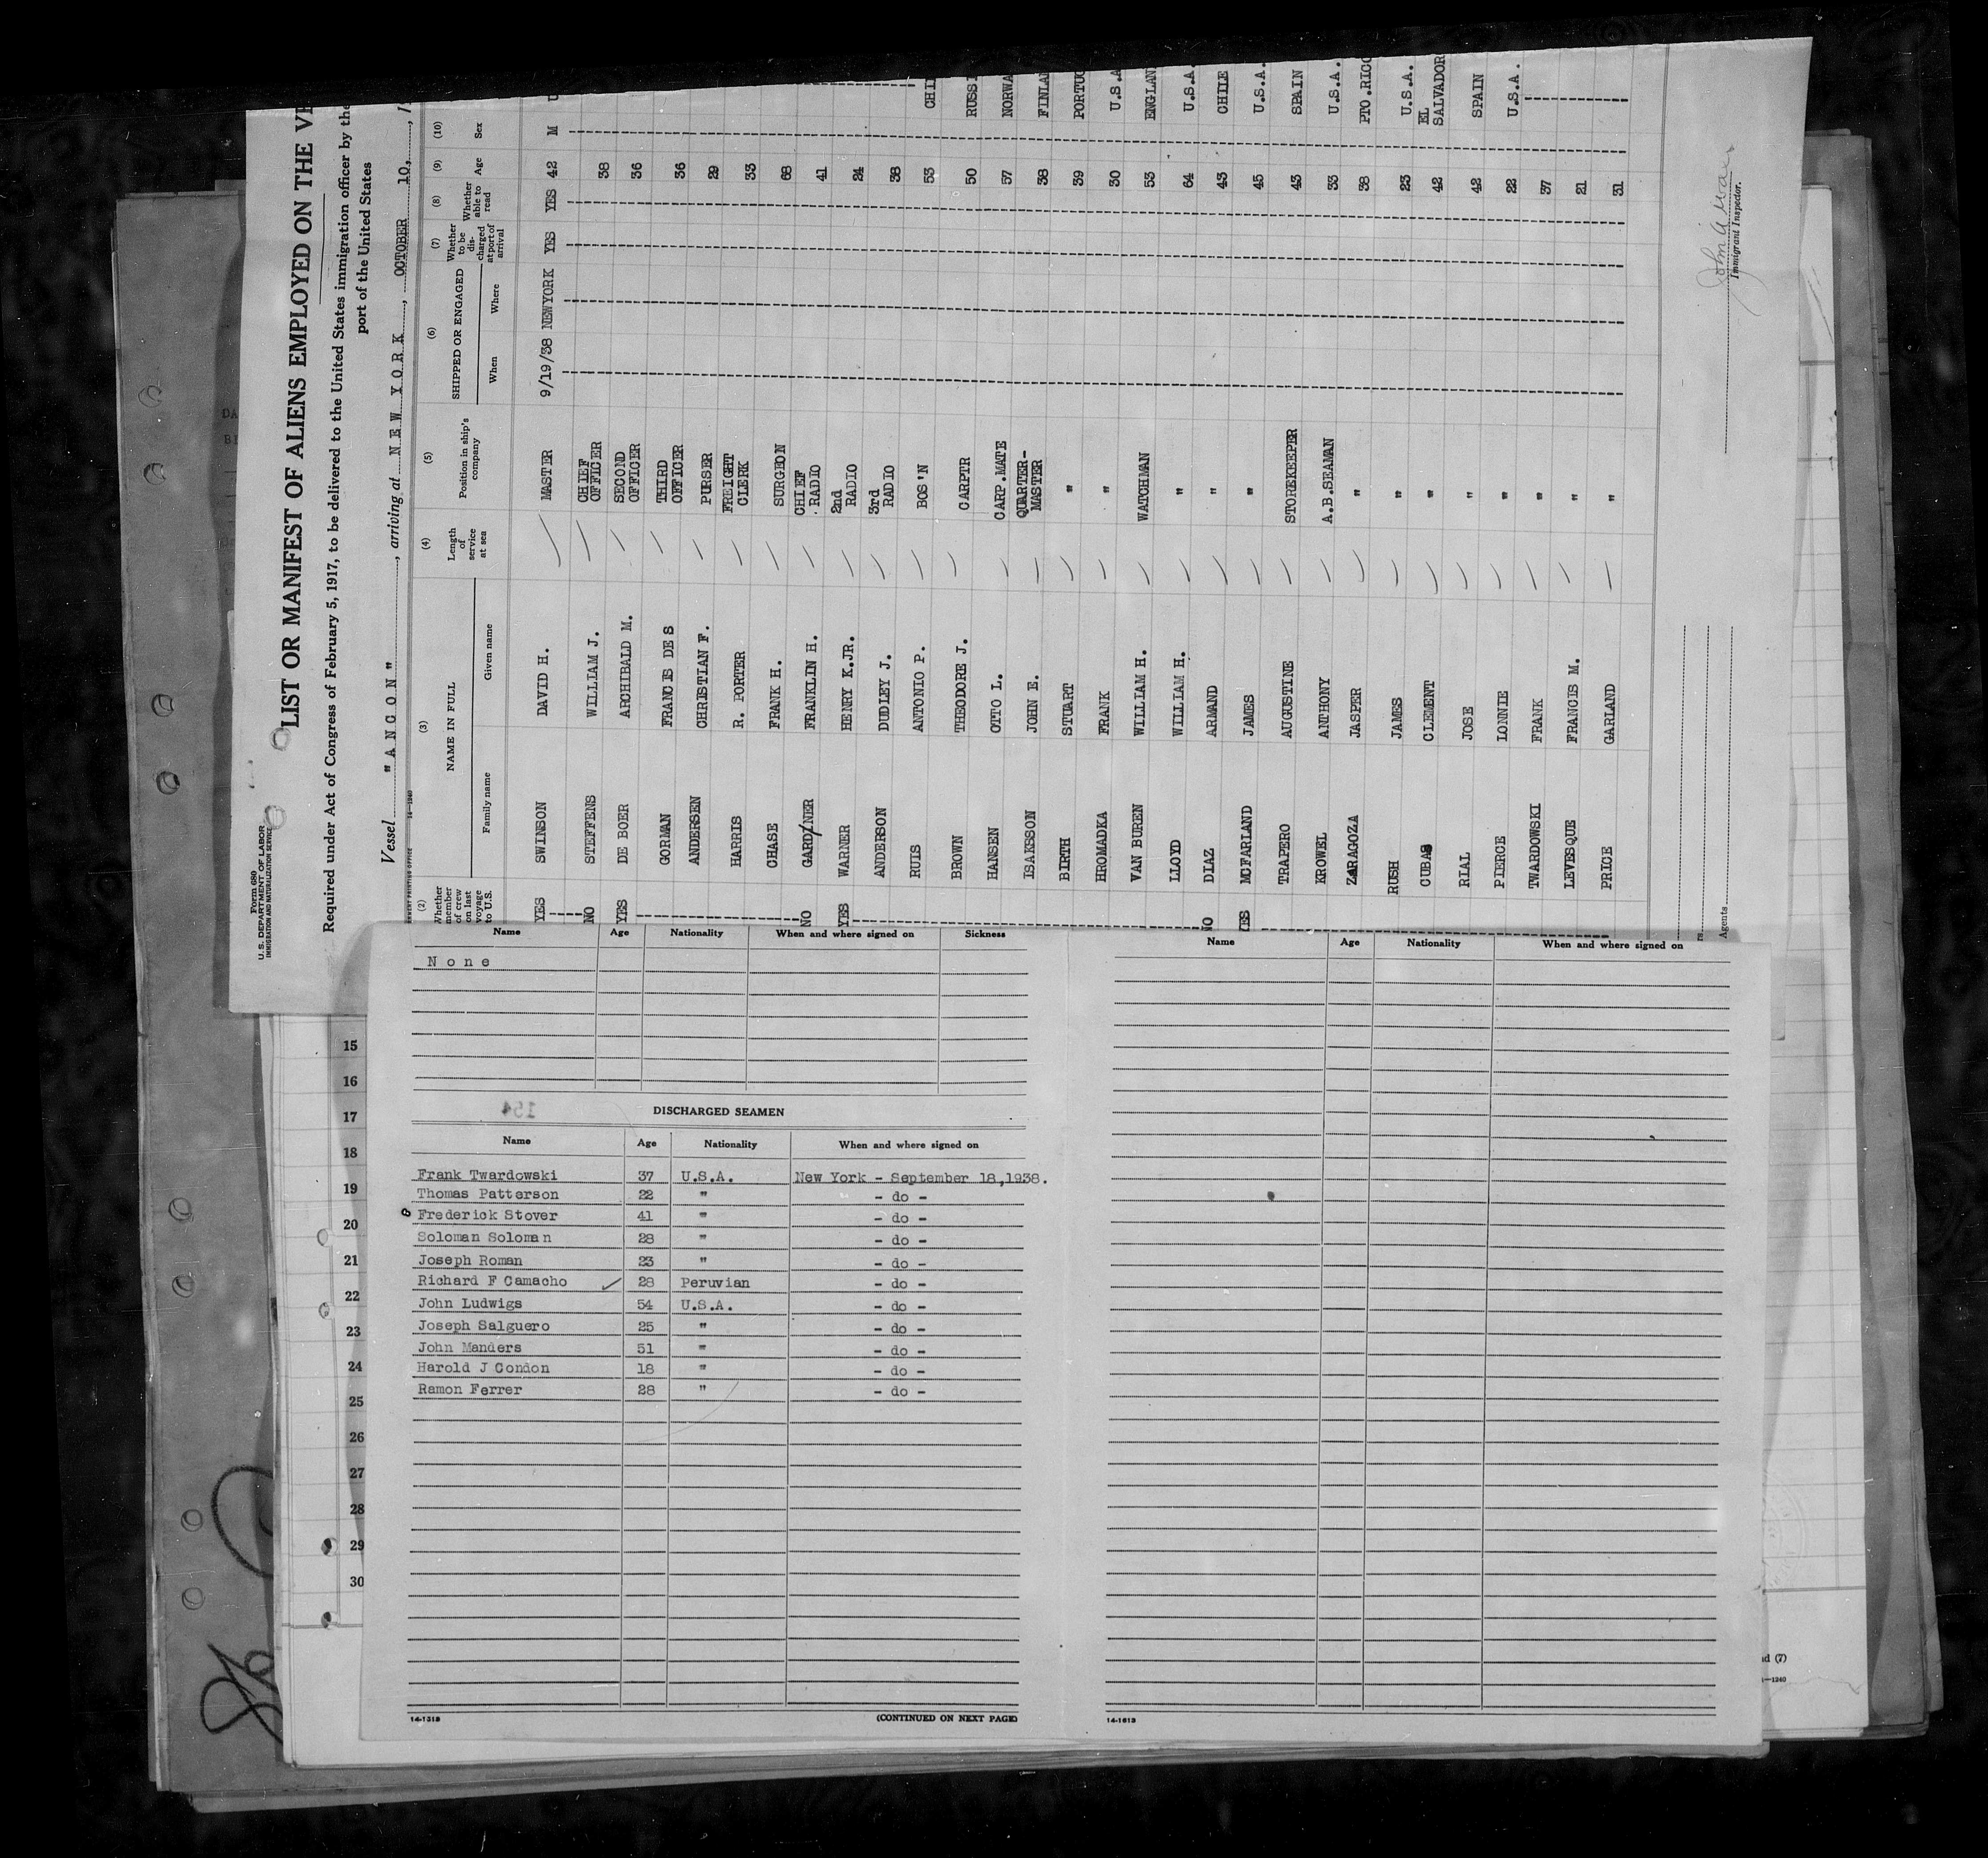 Form 680
U. S. DEPARTMENT OF LABOR
IMMIGRATION AND NATURALIZATION SERVICE
LIST OR MANIFEST OF ALIENS EMPLOYED ON THE
Required under Act of Congress of February 5, 1917, to be delivered to the United States immigration officer by the
port of the United States
Vessel "ANCON", arriving at NEW YORK, OCTOBER 10,
14—1240
(2) (3) (4) (5) (6) (7) (8) (9) (10)
Whether member of crew on last voyage to U.S. NAME IN FULL Family name Given name Length of service at sea Position in ship's company SHIPPED OR ENGAGED When Where Whether to be discharged at port of arrival Whether able to read Age Sex
YES SWINSON DAVID H. MASTER 9/19/38 NEWYORK YES YES 42 M
NO STEFFENS WILLIAM J. CHIEF OFFICER 38
YES DE BOER ARCHIBALD M. SECOND OFFICER 36
GORMAN FRANCIS DE S THIRD OFFICER 36
ANDERSEN CHRISTIAN F. PURSER 29
HARRIS R. PORTER FREIGHT CLERK 33
CHASE FRANK H. SURGEON 68
NO GARDNER FRANKLIN H. CHIEF RADIO 41
YES WARNER HENRY K.JR. 2nd RADIO 24
ANDERSON DUDLEY J. 3rd RADIO 38
RUIS ANTONIO P. BOS'N 53 CHI
BROWN THEODORE J. CARPTR 50 RUSSI
HANSEN OTTO L. CARP.MATE 57 NORWA
ISAKSSON JOHN E. QUARTER-MASTER 38 FINLA
BIRTH STUART " 39 PORTUG
HROMADKA FRANK " 30 U.S.A
VAN BUREN WILLIAM H. WATCHMAN 53 ENGLAN
LLOYD WILLIAM H. " 64 U.S.A.
NO DIAZ ARMAND " 43 CHILE
YES MCFARLAND JAMES " 45 U.S.A.
TRAPERO AUGUSTINE STOREKEEPER 43 SPAIN
KROWEL ANTHONY A.B.SEAMAN 33 U.S.A.
ZARAGOZA JASPER " 38 PTO.RICO
RUSH JAMES " 23 U.S.A.
CUBAS CLEMENT " 42 EL SALVADOR
RIAL JOSE " 42 SPAIN
PIERCE LONNIE " 22 U.S.A.
TWARDOWSKI FRANK " 37
LEVESQUE FRANCIS M. " 21
PRICE GARLAND " 31
Agents
Immigrant Inspector.
Name Age Nationality When and where signed on Sickness
None
154
DISCHARGED SEAMEN
Name Age Nationality When and where signed on
Frank Twardowski 37 U.S.A. New York - September 18,1938.
Thomas Patterson 22 " - do -
Frederick Stover 41 " - do -
Soloman Soloman 28 " - do -
Joseph Roman 23 " - do -
Richard F Camacho 28 Peruvian - do -
John Ludwigs 54 U.S.A. - do -
Joseph Salguero 25 " - do -
John Manders 51 " - do -
Harold J Condon 18 " - do -
Ramon Ferrer 28 " - do -
14-1313
(CONTINUED ON NEXT PAGE)
Name Age Nationality When and where signed on
14-1613
15
16
17
18
19
20
21
22
23
24
25
26
27
28
29
30
nd (7)
—1240